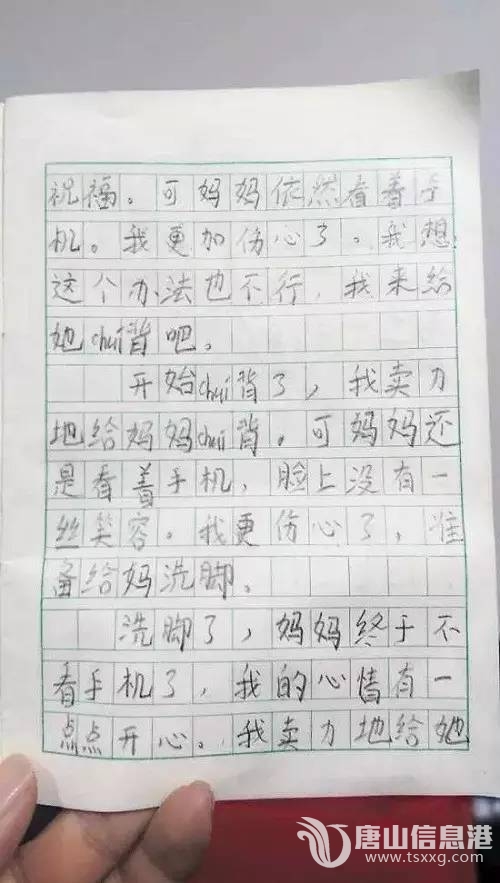 祝福。可妈妈依然看着手
机。我更加伤心了。我想
这个办法也不行，我来给
她chuí背吧。
开始chuí背了，我卖力
地给妈妈chuí背。可妈妈还
是看着手机，脸上没有一
丝笑容。我更伤心了，准
备给妈洗脚。
洗脚了，妈妈终于不
看手机了，我的心情有一
点点开心。我卖力地给她
唐山信息港
www.tsxxg.com